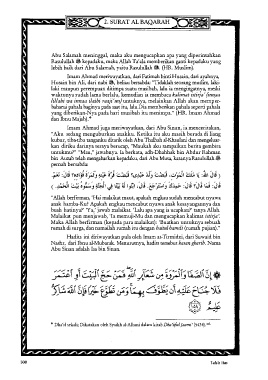 2. SURAT AL BAQARAH
Abu Salamah meninggal, maka aku mengucapkan apa yang diperintahkan
Rasulullah ﷺ kepadaku, maka Allah Ta'ala memberikan ganti kepadaku yang
lebih baik dari Abu Salamah, yaitu Rasulullah ﷺ. (HR. Muslim).
Imam Ahmad meriwayatkan, dari Fatimah binti Husain, dari ayahnya,
Husain bin Ali, dari nabi ﷺ, beliau bersabda: "Tidaklah seorang muslim, laki-
laki maupun perempuan ditimpa suatu musibah, lalu ia mengingatnya, meski
waktunya sudah lama berlalu, kemudian ia membaca kalimat istirja' (innaa
lillahi wa innaa ilaihi raaji'un) untuknya, melainkan Allah akan memper-
baharui pahala baginya pada saat itu, lalu Dia memberikan pahala seperti pahala
yang diberikan-Nya pada hari musibah itu menimpa." (HR. Imam Ahmad
dan Ibnu Majah).*
Imam Ahmad juga meriwayatkan, dari Abu Sinan, ia menceritakan,
"Aku sedang menguburkan anakku. Ketika itu aku masih berada di liang
kubur, tiba-tiba tanganku ditarik oleh Abu Thalhah al-Khaulani dan mengeluar-
kan diriku darinya seraya berucap, "Maukah aku sampaikan berita gembira
untukmu?" "Mau," jawabnya. Ia berkata, adh-Dhahhak bin Abdur Rahman
bin Auzab telah mengabarkan kepadaku, dari Abu Musa, katanya Rasulullah ﷺ
pernah bersabda:
"Allah berfirman, 'Hai malaikat maut, apakah engkau telah mencabut nyawa
anak hamba-Ku? Apakah engkau mencabut nyawa anak kesayangannya dan
buah hatinya?' 'Ya,' jawab malaikat. 'Lalu apa yang ia ucapkan?' tanya Allah.
Malaikat pun menjawab, 'Ia memuji-Mu dan mengucapkan kalimat istirja'.'
Maka Allah berfirman (kepada para malaikat): 'Buatkan untuknya sebuah
rumah di surga, dan namailah rumah itu dengan baitul hamdi (rumah pujian).'"
Hadits ini diriwayatkan pula oleh Imam at-Tirmidzi, dari Suwaid bin
Nashr, dari Ibnul al-Mubarak. Menurutnya, hadits tersebut hasan gharib. Nama
Abu Sinan adalah Isa bin Sinan.
إِنَّ الصَّفَا وَالْمَرْوَةَ مِن شَعَائِرِ اللَّهِ فَمَنْ حَجَّ الْبَيْتَ أَوِ اعْتَمَرَ
فَلَا جُنَاحَ عَلَيْهِ أَن يَطَّوَّفَ بِهِمَا وَمَن تَطَوَّعَ خَيْرًا فَإِنَّ اللَّهَ شَاكِرٌ
عَلِيمٌ